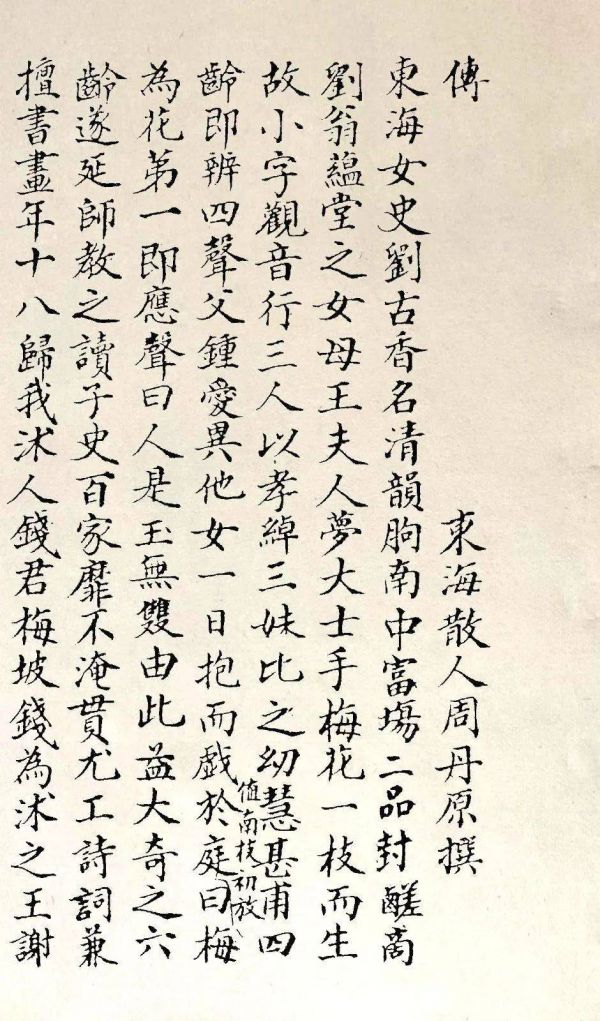 傳
東海散人周丹原撰
東海女史劉古香名清韻朐南中富塲二品封鹺商
劉翁蘊堂之女母王夫人夢大士手梅花一枝而生
故小字觀音行三人以孝綽三妹比之幼慧甚甫四
齡即辨四聲父鍾愛異他女一日抱而戲於庭值南枝初放曰梅
為花第一即應聲曰人是玉無雙由此益大奇之六
齡遂延師教之讀子史百家靡不淹貫尤工詩詞兼
擅書畫年十八歸我沭人錢君梅坡錢為沭之王謝